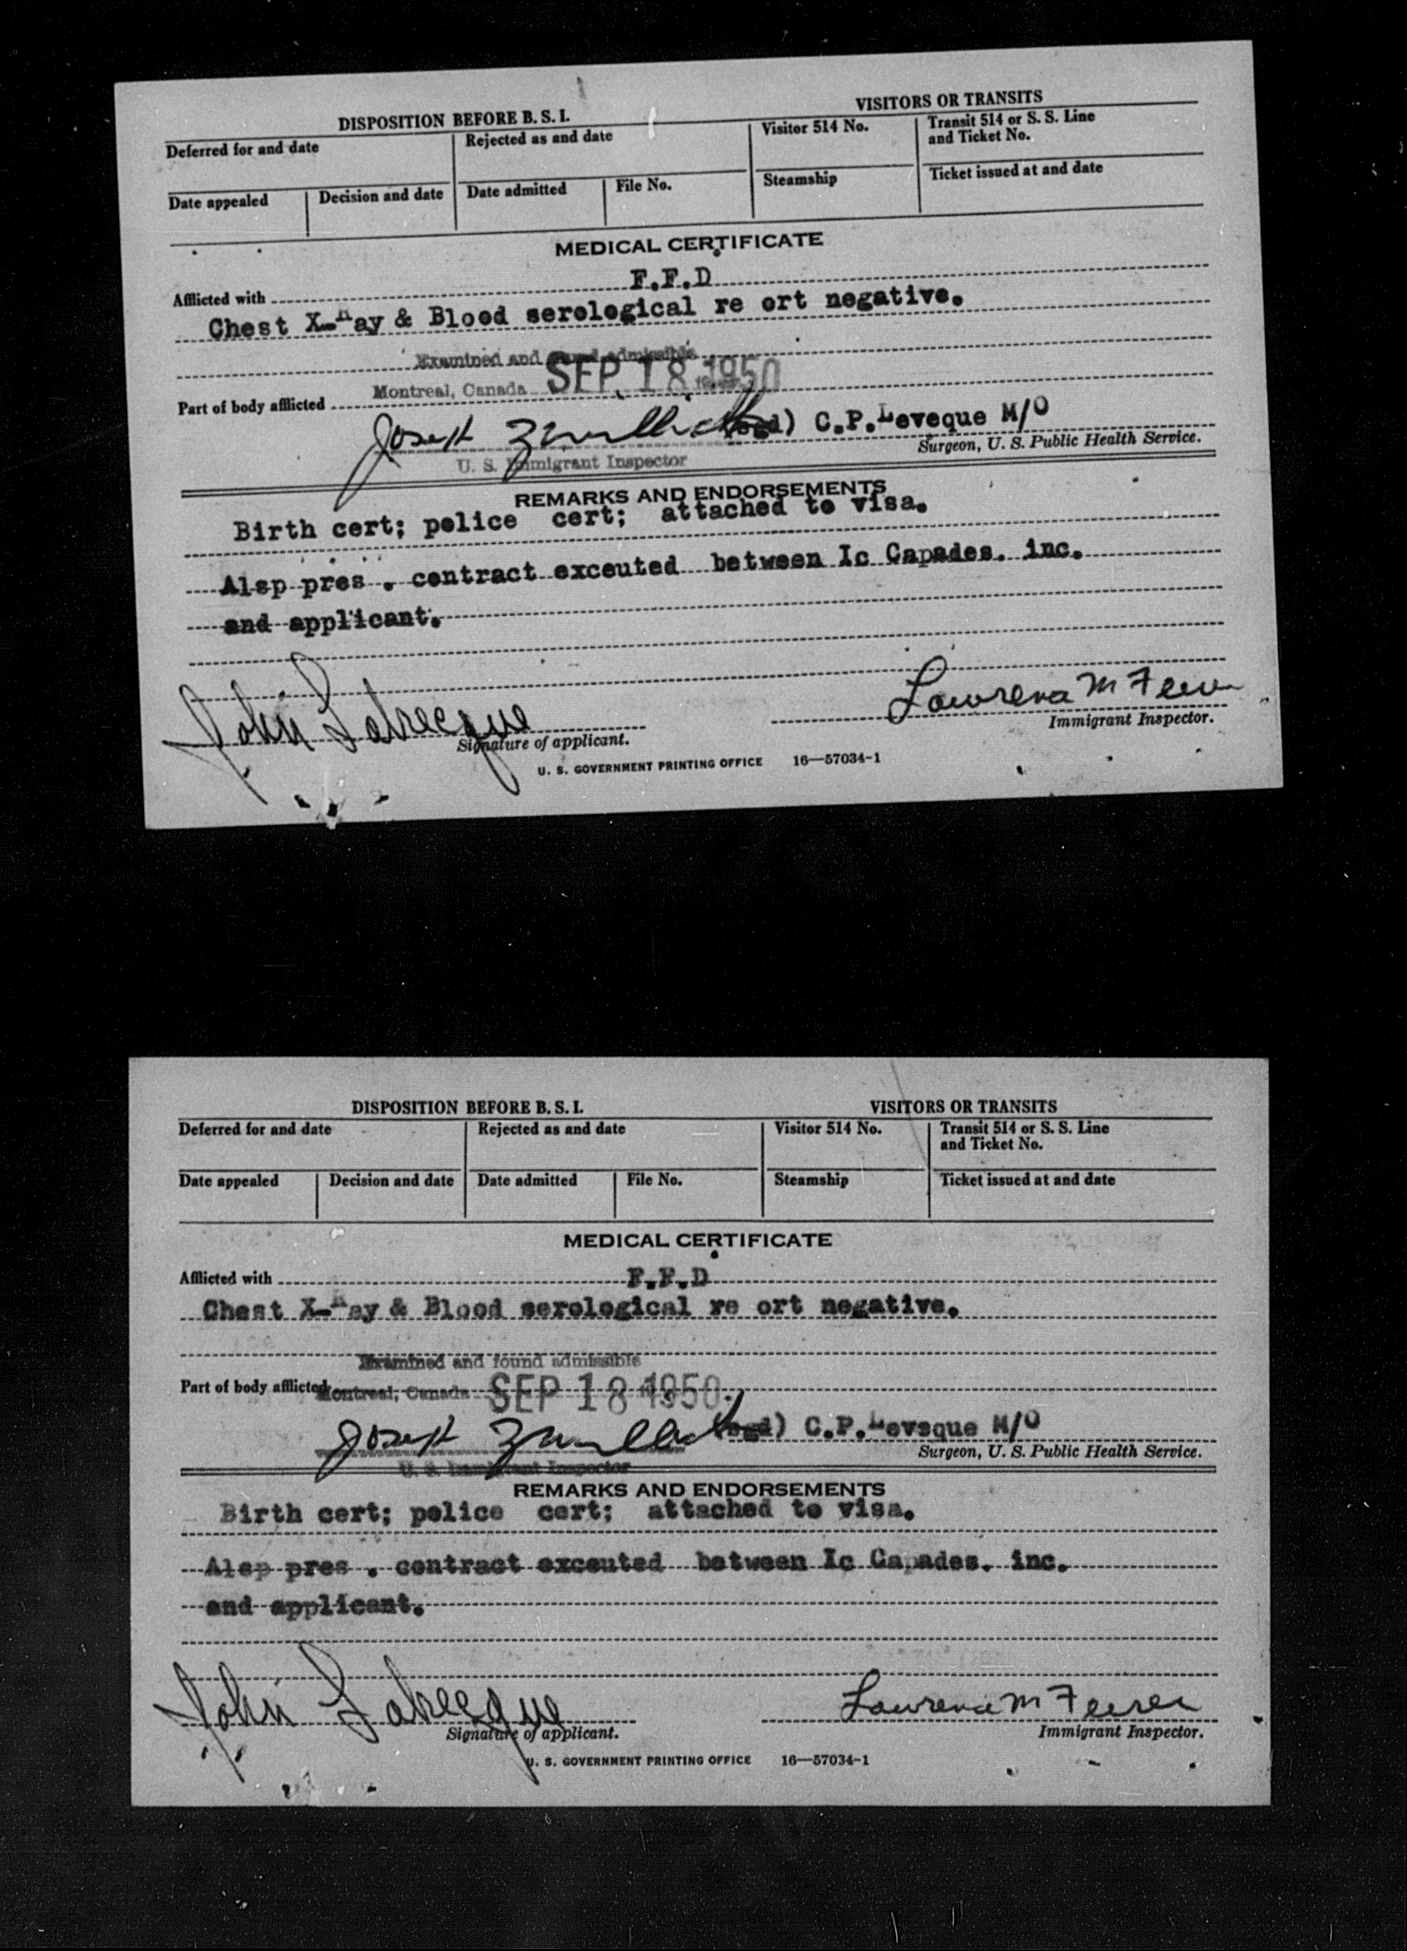 DISPOSITION BEFORE B. S. I. VISITORS OR TRANSITS
Deferred for and date Rejected as and date Visitor 514 No. Transit 514 or S. S. Line and Ticket No.
Date appealed Decision and date Date admitted File No. Steamship Ticket issued at and date
MEDICAL CERTIFICATE
Afflicted with F.F.D
Chest X-Ray & Blood serological re ort negative.
Examined and found admissible
Part of body afflicted Montreal, Canada SEP 18 1950
Joseph (sgd) C.P.Leveque M/O
Surgeon, U. S. Public Health Service.
U. S. Immigrant Inspector
REMARKS AND ENDORSEMENTS
Birth cert; police cert; attached to visa.
Alsp pres . contract exceuted between Ic Capades. inc.
and applicant.
John Labrecque Lawrena M
Signature of applicant. Immigrant Inspector.
U. S. GOVERNMENT PRINTING OFFICE 16—57034-1
DISPOSITION BEFORE B. S. I. VISITORS OR TRANSITS
Deferred for and date Rejected as and date Visitor 514 No. Transit 514 or S. S. Line and Ticket No.
Date appealed Decision and date Date admitted File No. Steamship Ticket issued at and date
MEDICAL CERTIFICATE
Afflicted with F.F.D
Chest X-Ray & Blood serological re ort negative.
Examined and found admissible
Part of body afflicted Montreal, Canada SEP 18 1950
Joseph (sgd) C.P.Levsque M/O
Surgeon, U. S. Public Health Service.
U. S. Immigrant Inspector
REMARKS AND ENDORSEMENTS
Birth cert; police cert; attached to visa.
Alsp pres . contract exceuted between Ic Capades. inc.
and applicant.
John Labrecque Lawrena M
Signature of applicant. Immigrant Inspector.
U. S. GOVERNMENT PRINTING OFFICE 16—57034-1